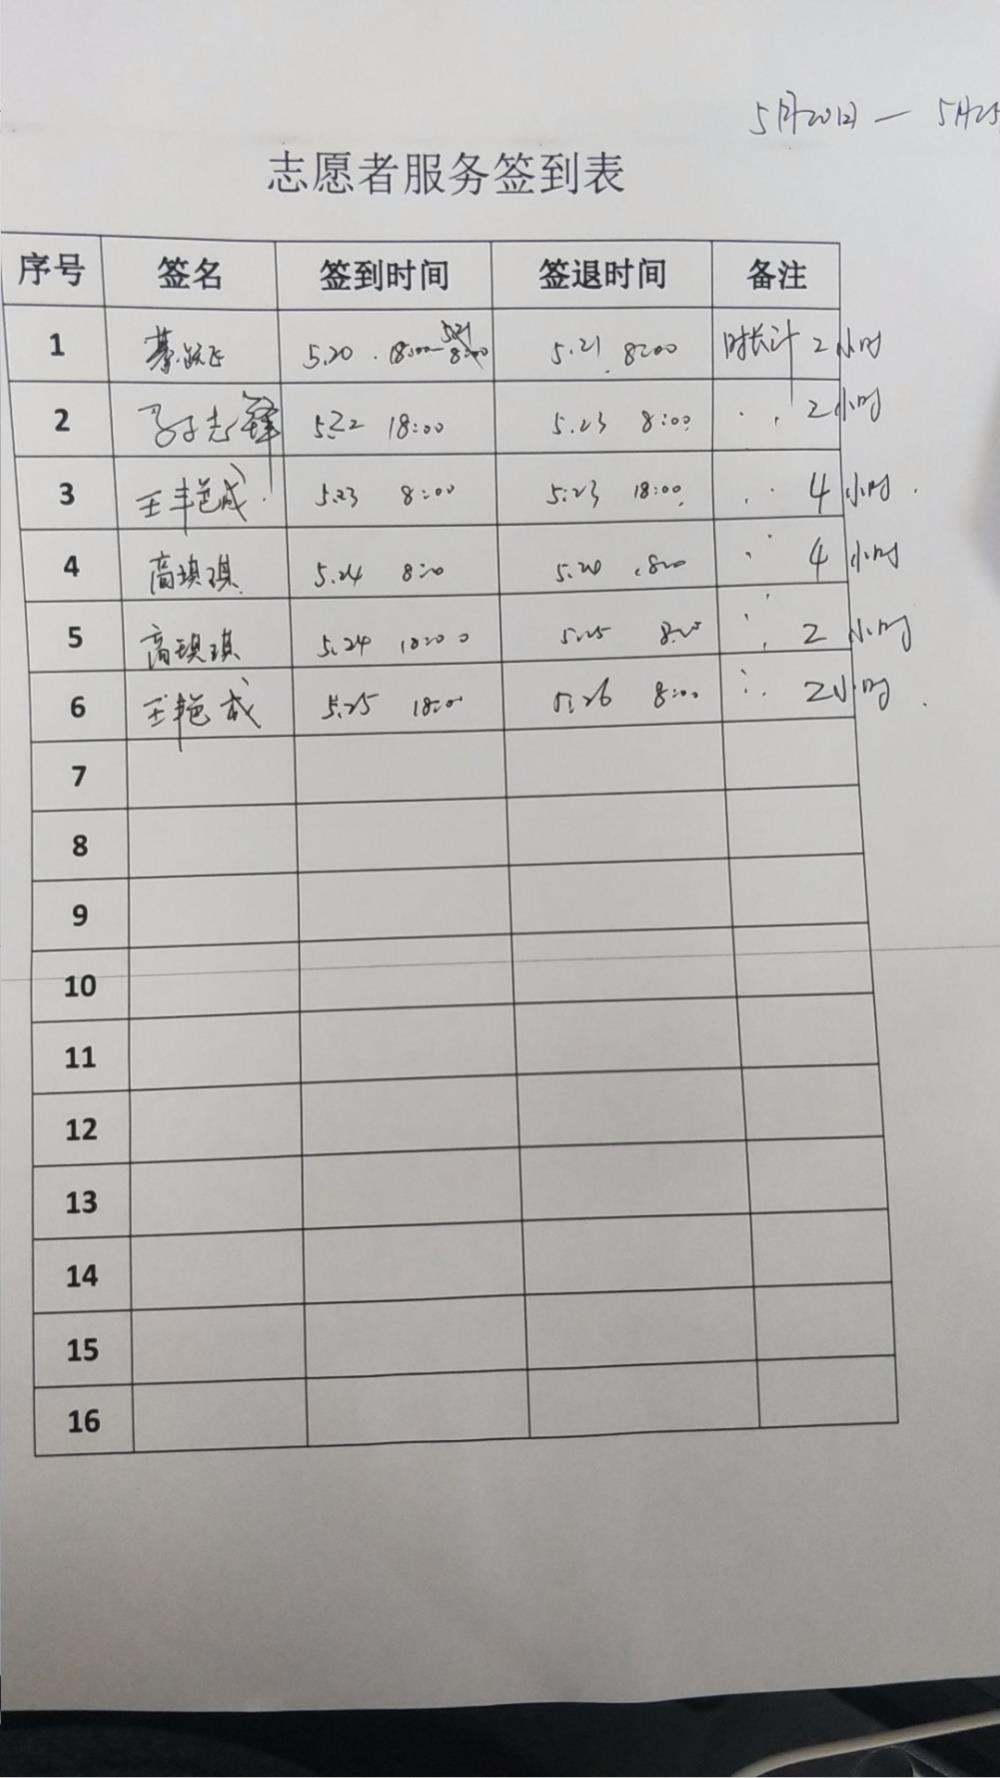 5月20日 — 5月25
志愿者服务签到表
序号 签名 签到时间 签退时间 备注
1 5.20 18:00 5.21 8:00 时长计 2小时
2 志锋 5.22 18:00 5.23 8:00 2小时
3 王艳成 5.23 8:00 5.23 18:00 4小时
4 高琪琪 5.24 8:00 5.24 4小时
5 高琪琪 5.24 18:00 5.25 8:00 2小时
6 王艳成 5.25 18:00 5.26 8:00 2小时
7
8
9
10
11
12
13
14
15
16